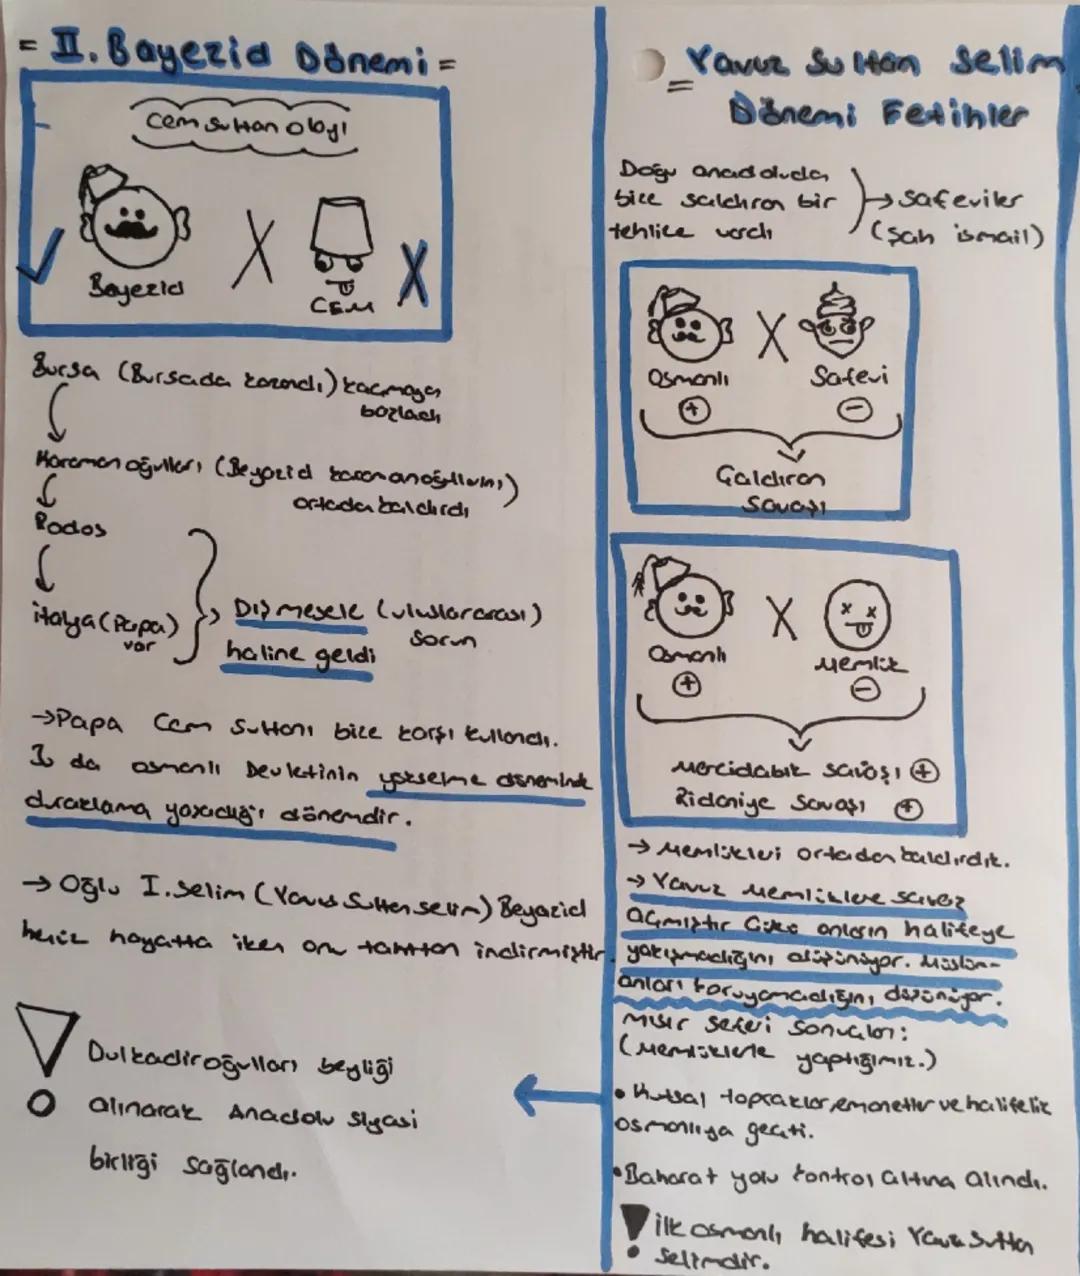 = II. Bayezid Dönemi =
Cem Sultan olayı
X
X
Bayezid
CEM
Bursa (Bursada kazandı) kaçmaya
başladı
Karamanoğulları (Beyazid karamanoğullarını)
ortadan kaldırdı
Rodos
italya (Papa)
var
Dış mesele (uluslararası)
sorun
haline geldi
→Papa Cem Sultanı bize karşı kullandı.
da osmanlı Devletinin yükselme döneminde
duraklama yaşadığı dönemdir.
→ Oğlu I. Selim (Yavuz Sultan Selim) Beyazid
henüz hayatta iken onu tahttan indirmiştir.
Dulkadiroğulları beyliği
alınarak Anadolu siyasi
birliği sağlandı.
= Yavuz Sultan Selim
Dönemi Fetihler
Doğu anadoluda
bize saldıran bir
tehlike vardı
→ Safeviler
(Şah ismail)
X
Osmanlı
Safevi
+
−
Çaldıran
Savaşı
X
Osmanlı
Memlük
+
−
Mercidabık savaşı +
Ridaniye Savaşı +
→ Memlükleri ortadan kaldırdık.
→ Yavuz Memlüklere savaş
açmıştır Çünkü onların halifeye
yakışmadığını düşünüyor. Müslüm-
anları koruyamadığını düşünüyor.
Mısır seferi sonuçları:
(Memlüklerle yaptığımız.)
• Kutsal topraklar, emanetler ve halifelik
osmanlıya geçti.
• Baharat yolu kontrol altına alındı.
! İlk osmanlı halifesi Yavuz Sultan
Selimdir.